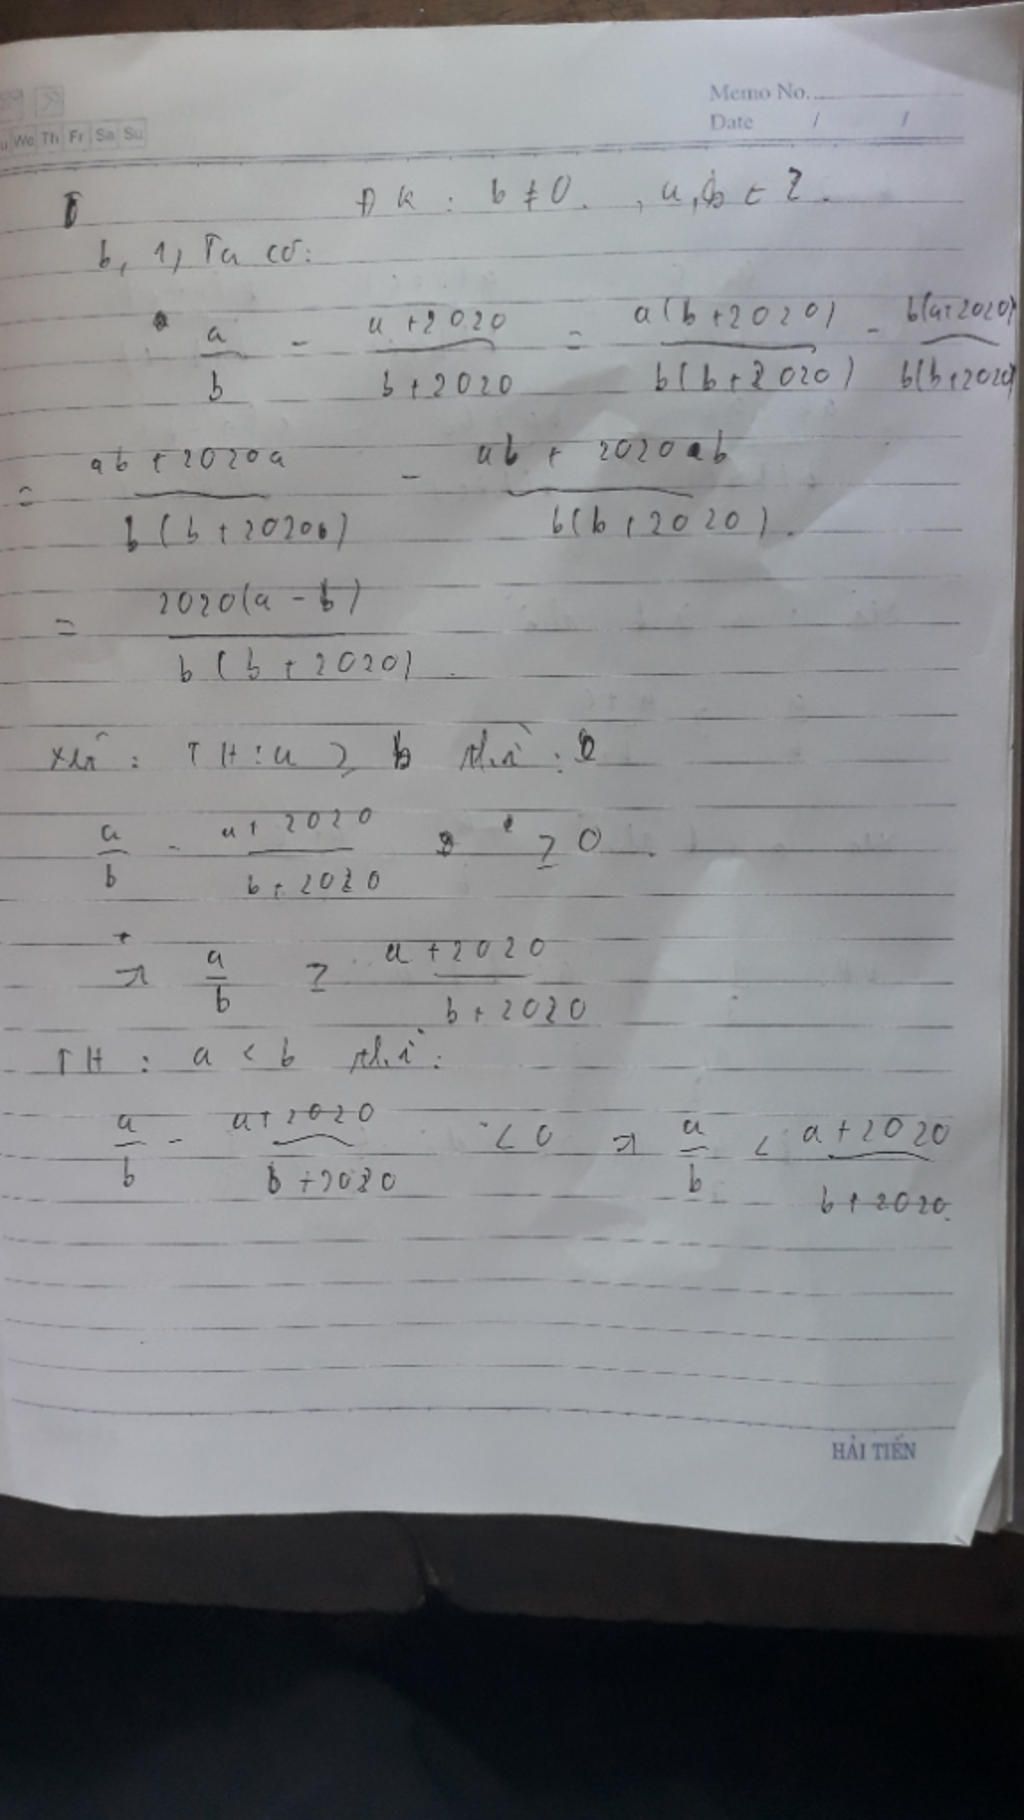 Memo No.
We Th Fr Sa Su
Date / /
ĐK : b ≠ 0 . , a, b ∈ Z .
b, 1, Ta có:
a/b - (a + 2020)/(b + 2020) = a(b + 2020)/b(b + 2020) - b(a + 2020)/b(b + 2020)
= (ab + 2020a)/b(b + 2020) - (ab + 2020b)/b(b + 2020) .
= 2020(a - b)/b(b + 2020) .
Xét : TH : a ≥ b thì :
a/b - (a + 2020)/(b + 2020) ≥ 0 .
a/b ≥ (a + 2020)/(b + 2020)
TH : a < b thì :
a/b - (a + 2020)/(b + 2020) < 0 a/b < (a + 2020)/(b + 2020) .
HẢI TIẾN